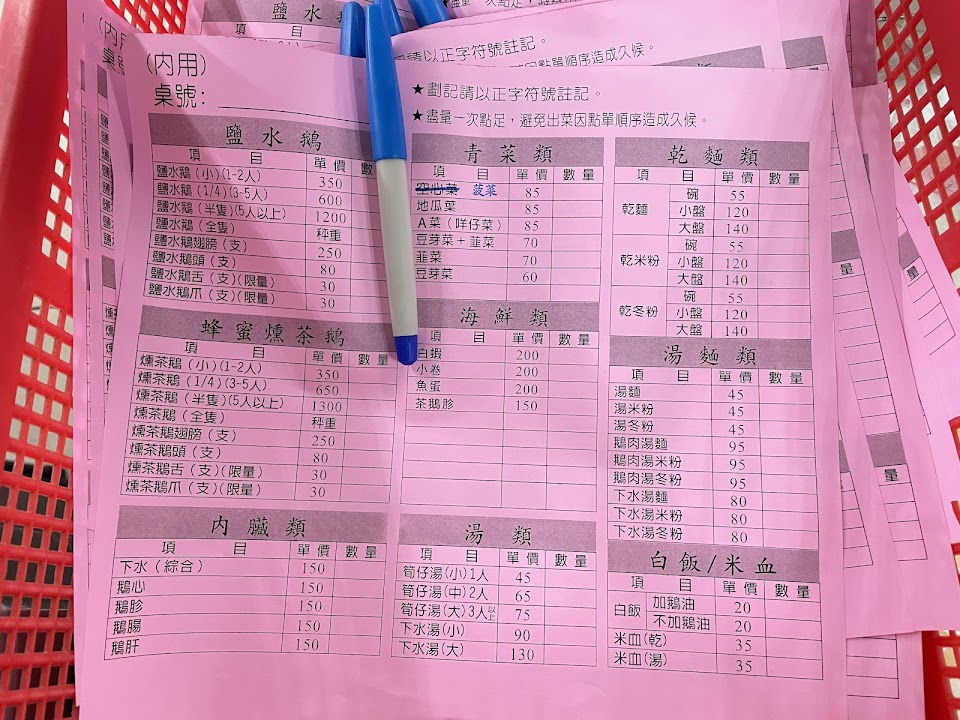 (內用)
桌號：
★劃記請以正字符號註記。
★盡量一次點足，避免出菜因點單順序造成久候。
鹽水鵝
項 目 單價
鹽水鵝（小）(1-2人) 350
鹽水鵝（1/4）(3-5人) 600
鹽水鵝（半隻）(5人以上) 1200
鹽水鵝（全隻） 秤重
鹽水鵝翅膀（支） 250
鹽水鵝頭（支） 80
鹽水鵝舌（支）(限量) 30
鹽水鵝爪（支）(限量) 30
蜂蜜燻茶鵝
項 目 單價 數量
燻茶鵝（小）(1-2人) 350
燻茶鵝（1/4）(3-5人) 650
燻茶鵝（半隻）(5人以上) 1300
燻茶鵝（全隻） 秤重
燻茶鵝翅膀（支） 250
燻茶鵝頭（支） 80
燻茶鵝舌（支）(限量) 30
燻茶鵝爪（支）(限量) 30
內臟類
項 目 單價 數量
下水（綜合） 150
鵝心 150
鵝胗 150
鵝腸 150
鵝肝 150
青菜類
項 目 單價 數量
空心菜 菠菜 85
地瓜葉 85
A菜（咩仔菜） 85
豆芽菜＋韮菜 70
韮菜 70
豆芽菜 60
海鮮類
項 目 單價 數量
白蝦 200
小卷 200
魚蛋 200
茶鵝胗 150
湯類
項 目 單價 數量
筍仔湯(小)1人 45
筍仔湯(中)2人 65
筍仔湯(大)3人以上 75
下水湯(小) 90
下水湯(大) 130
乾麵類
項 目 單價 數量
乾麵 碗 55
小盤 120
大盤 140
乾米粉 碗 55
小盤 120
大盤 140
乾冬粉 碗 55
小盤 120
大盤 140
湯麵類
項 目 單價 數量
湯麵 45
湯米粉 45
湯冬粉 45
鵝肉湯麵 95
鵝肉湯米粉 95
鵝肉湯冬粉 95
下水湯麵 80
下水湯米粉 80
下水湯冬粉 80
白飯/米血
項 目 單價 數量
白飯 加鵝油 20
不加鵝油 20
米血(乾) 35
米血(湯) 35